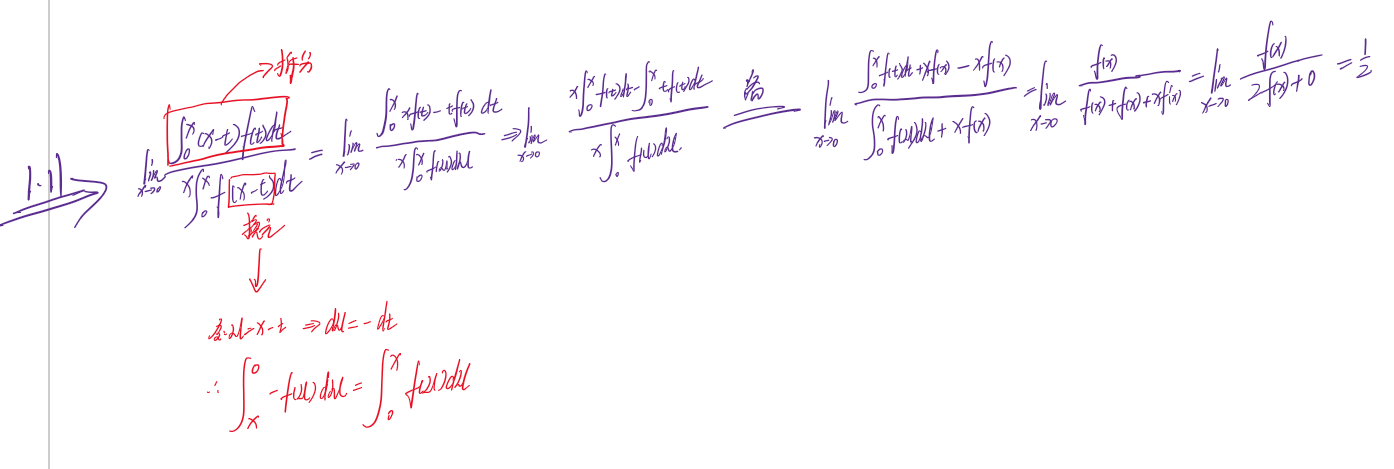 1.11
→拆分
$\lim_{x \to 0} \frac{\int_0^x (x-t) f(t) dt}{x \int_0^x f(x-t) dt} = \lim_{x \to 0} \frac{\int_0^x x f(t) - t f(t) \, dt}{x \int_0^x f(u) du} \Rightarrow \lim_{x \to 0} \frac{x \int_0^x f(t) dt - \int_0^x t f(t) dt}{x \int_0^x f(u) du}$ 洛 $\lim_{x \to 0} \frac{\int_0^x f(t) dt + x f(x) - x f(x)}{\int_0^x f(u) du + x f(x)} = \lim_{x \to 0} \frac{f(x)}{f(x) + f(x) + x f'(x)} = \lim_{x \to 0} \frac{f(x)}{2 f(x) + 0} = \frac{1}{2}$
换元
↓
令: $u = x - t \Rightarrow du = -dt$
$\therefore \int_x^0 -f(u) du = \int_0^x f(u) du$